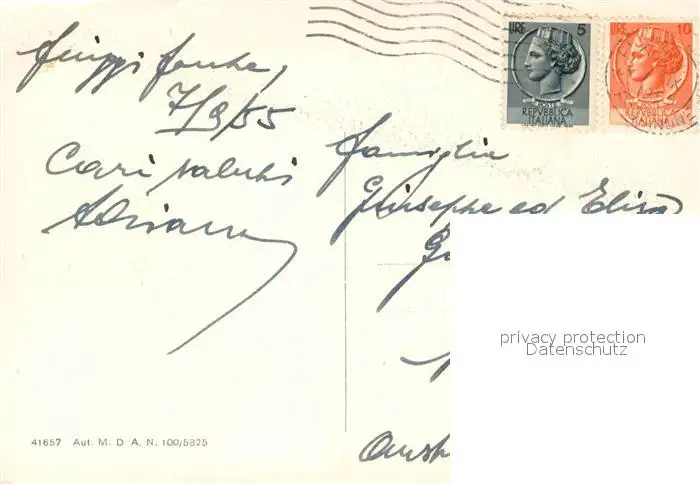 Fiuggi Fonte,
7/9/55
Cari saluti
Adriana
LIRE 5
POSTE
REPVBBLICA
ITALIANA
LIRE 10
POSTE
REPVBBLICA
ITALIANA
famiglia
Giuseppe ed Elisa
privacy protection
Datenschutz
41657 Aut. M. D A. N. 100/5825